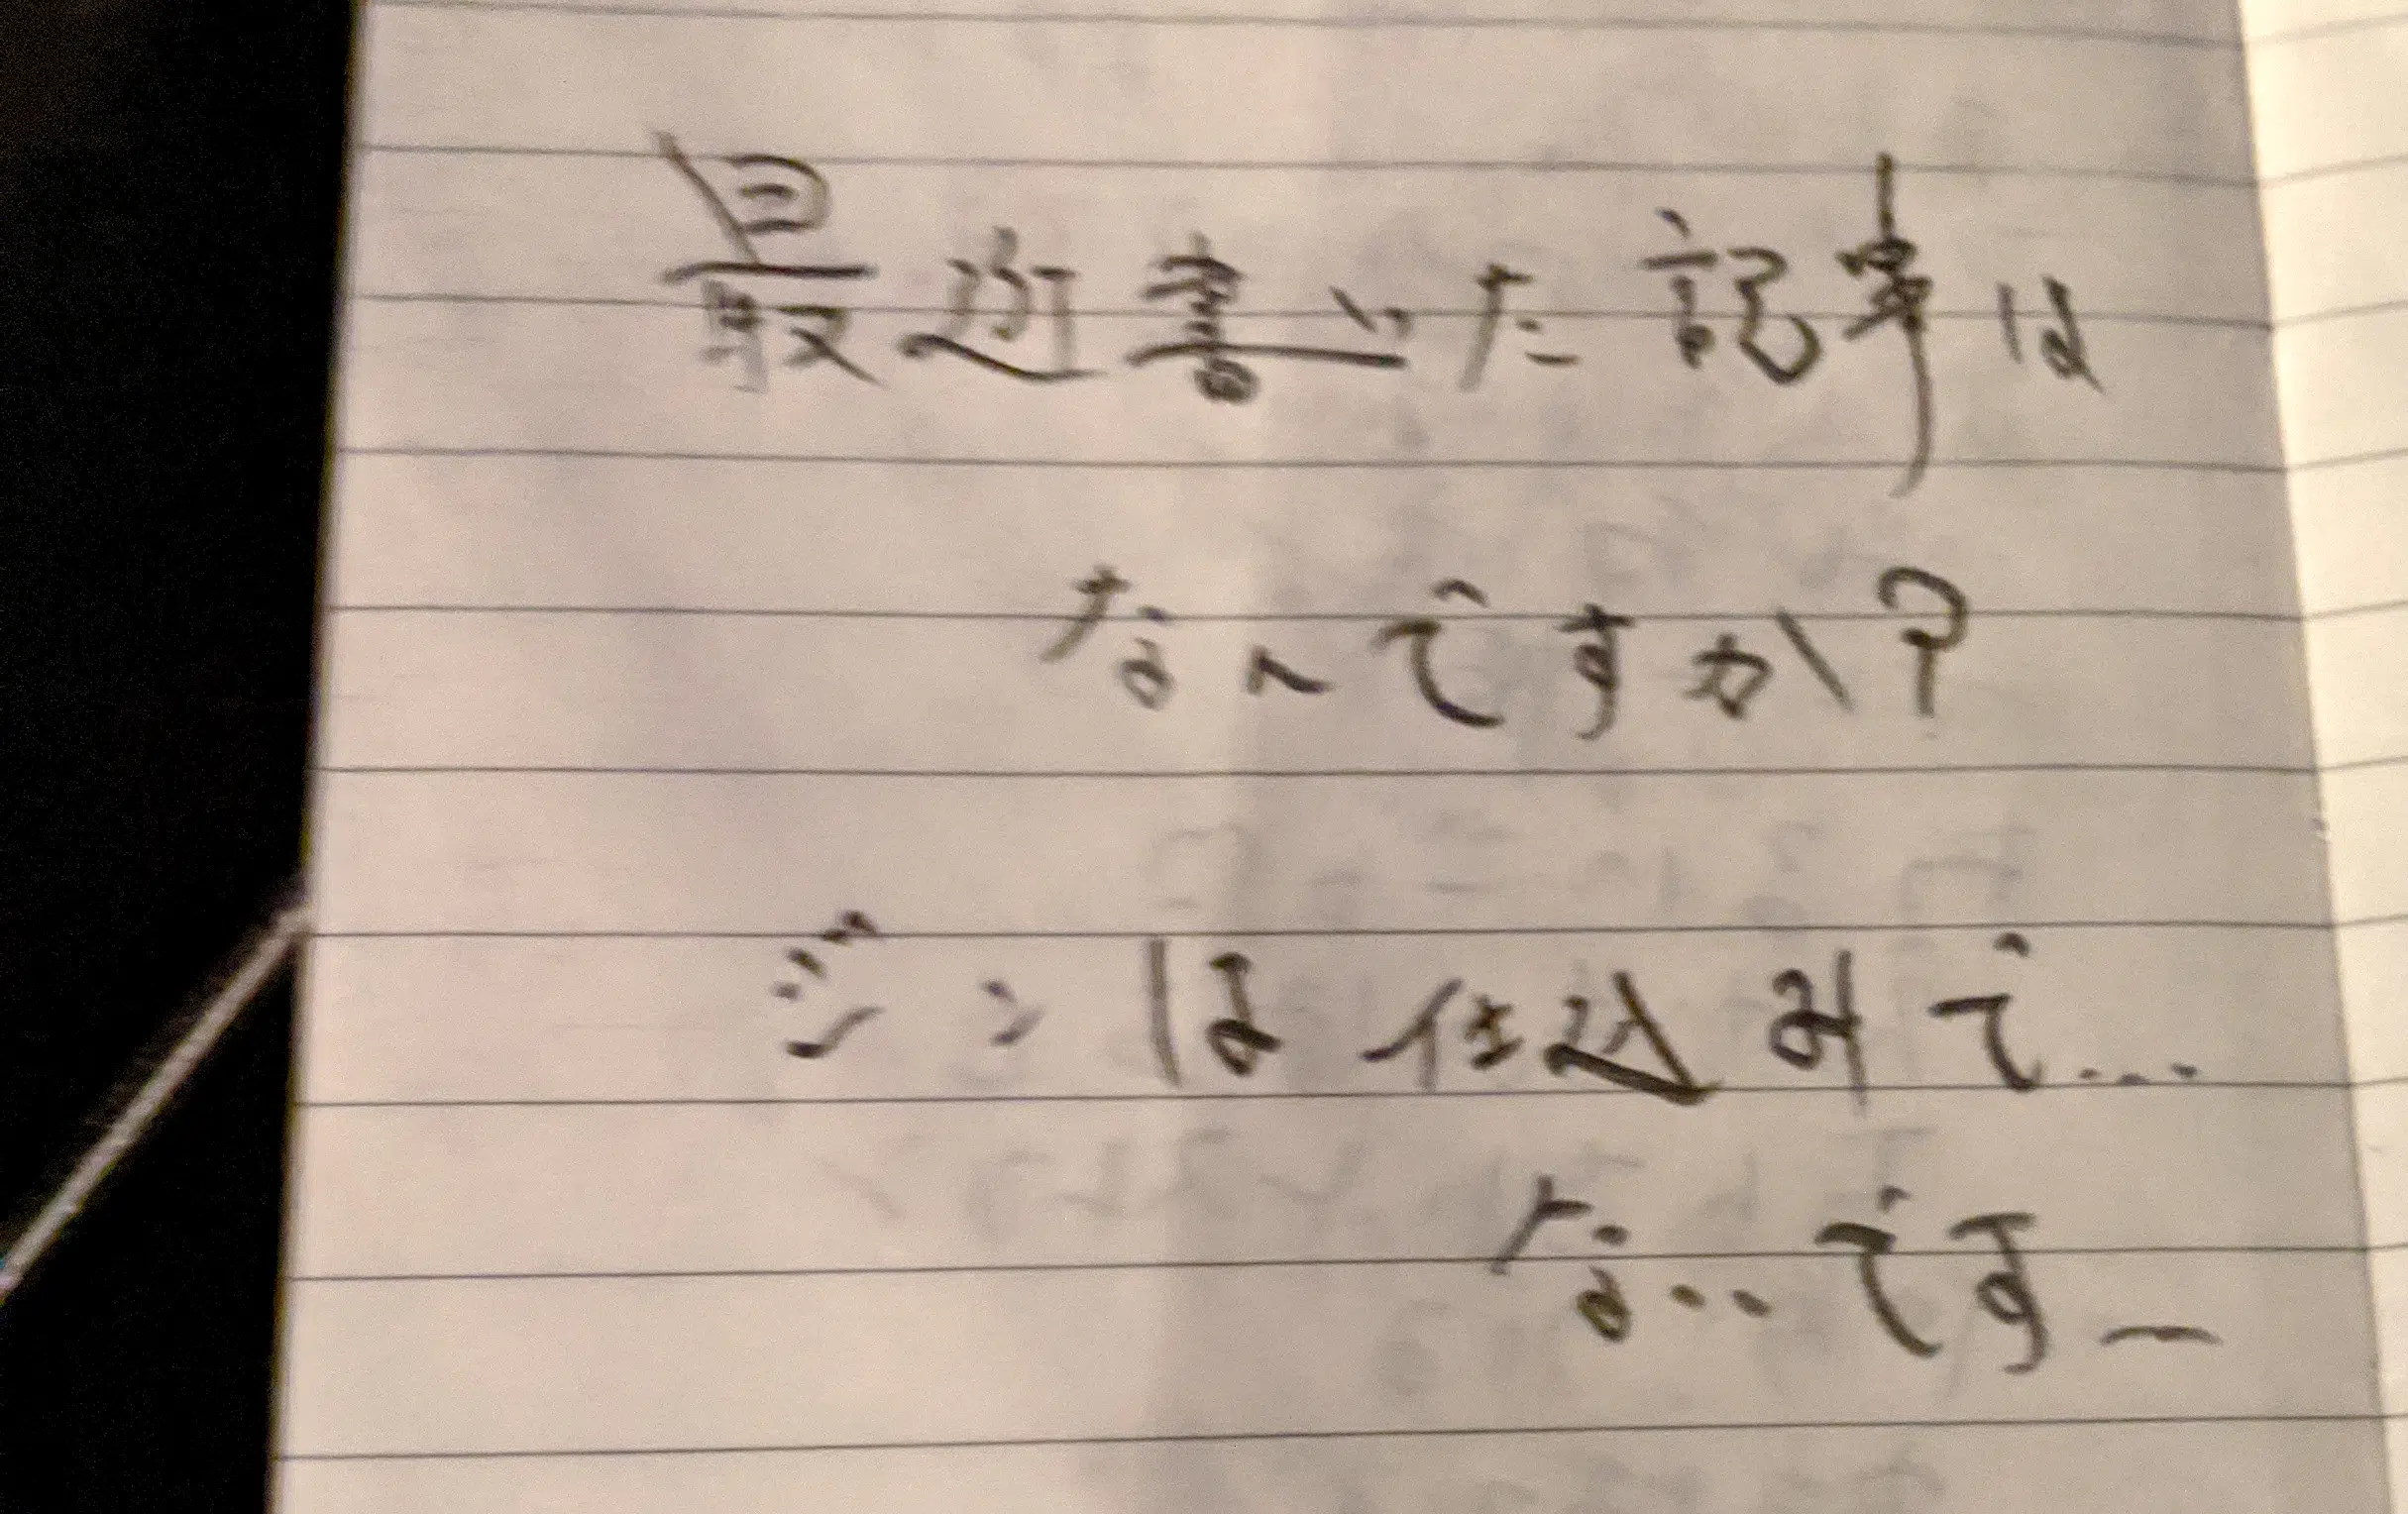 最近書いた記事は
なんですか?
ジンは仕込みで...
な..です_